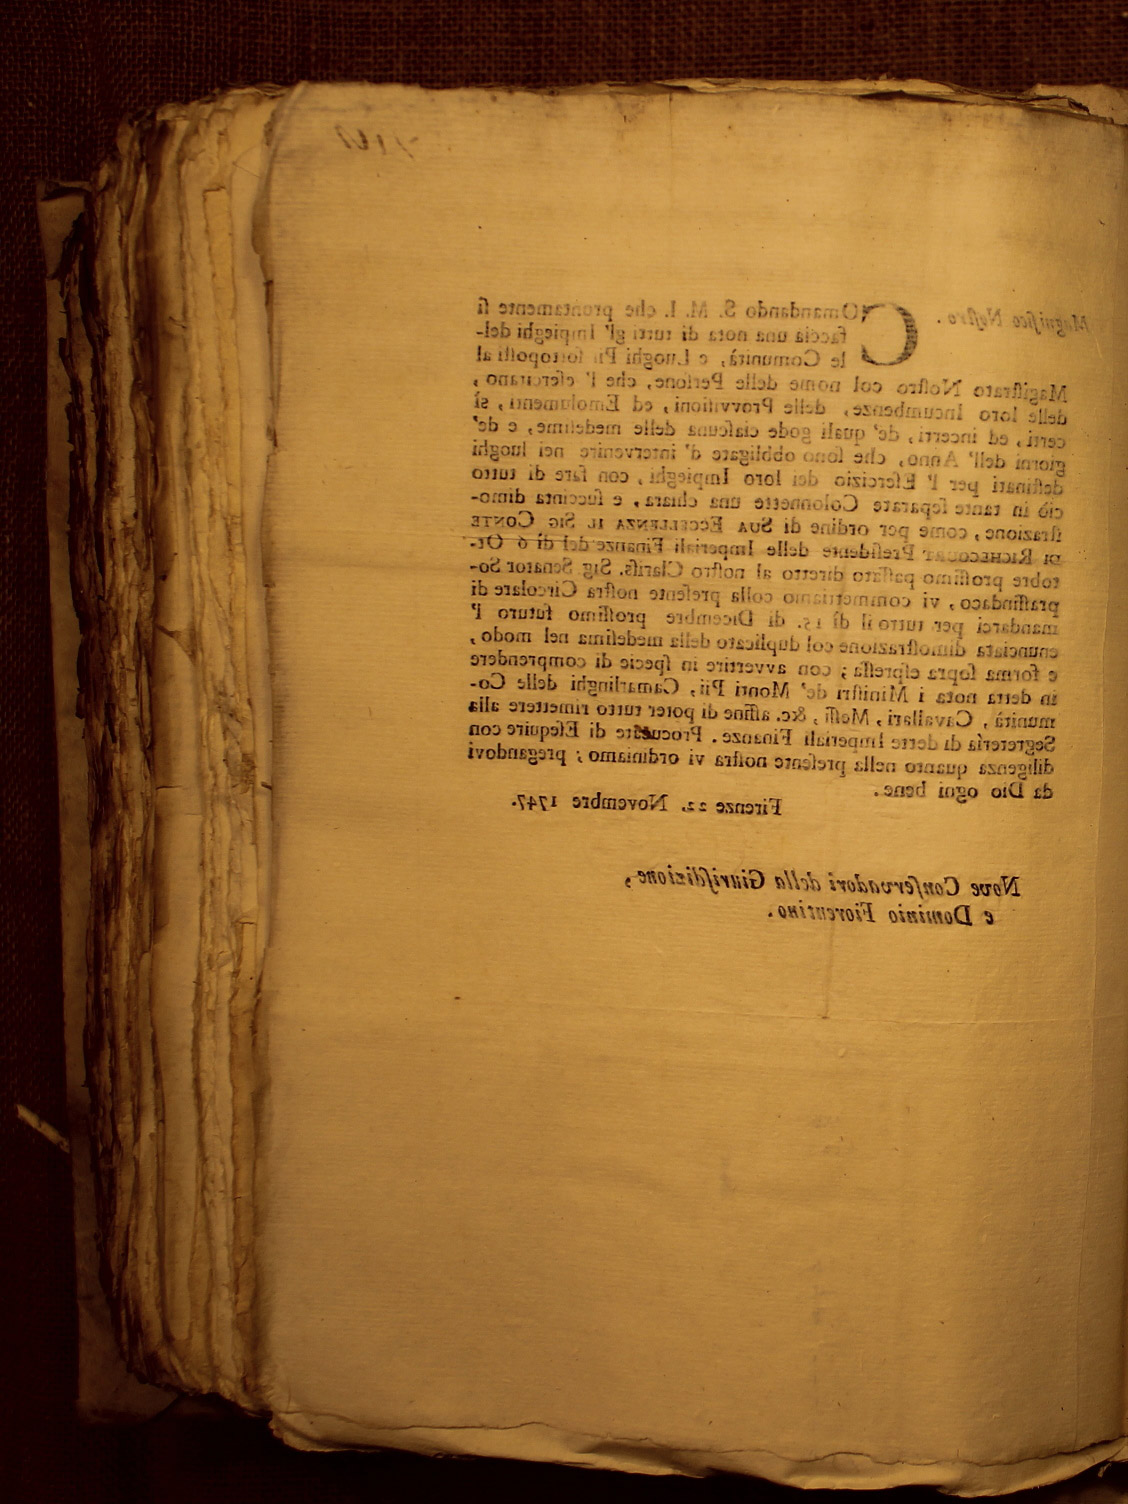 Magnifico Noſtro.
COmandando S. M. I. che prontamente ſi
faccia una nota di tutti gl' Impieghi del-
le Comunità, e Luoghi Pii ſottopoſti al
Magiſtrato Noſtro col nome delle Perſone, che l' eſercitano,
delle loro Incumbenze, delle Provviſioni, ed Emolumenti, sì
certi, ed incerti, de' quali gode ciaſcuna delle medeſime, e de'
giorni dell' Anno, che ſono obbligate d' intervenire nei luoghi
deſtinati per l' Eſercizio dei loro Impieghi, con fare di tutto
ciò in tante ſeparate Colonnette una chiara, e ſuccinta dimo-
ſtrazione, come per ordine di SUA ECCELLENZA IL SIG CONTE
DI RICHECOURT Preſidente delle Imperiali Finanze del dì 6 Ot-
tobre proſſimo paſſato diretto al noſtro Clariſs. Sig Senator So-
praſſindaco, vi commettiamo colla preſente noſtra Circolare di
mandarci per tutto il dì 15. di Dicembre proſſimo futuro l'
enunciata dimoſtrazione col duplicato della medeſima nel modo,
e forma ſopra eſpreſſa; con avvertire in ſpecie di comprendere
in detta nota i Miniſtri de' Monti Pii, Camarlinghi delle Co-
munità, Cavallari, Meſſi, &c. affine di poter tutto rimettere alla
Segreteria di dette Imperiali Finanze. Procurate di Eſequire con
diligenza quanto nella preſente noſtra vi ordiniamo; pregandovi
da Dio ogni bene.
Firenze 22. Novembre 1747.
Nove Conſervadori della Giuriſdizione,
e Dominio Fiorentino.